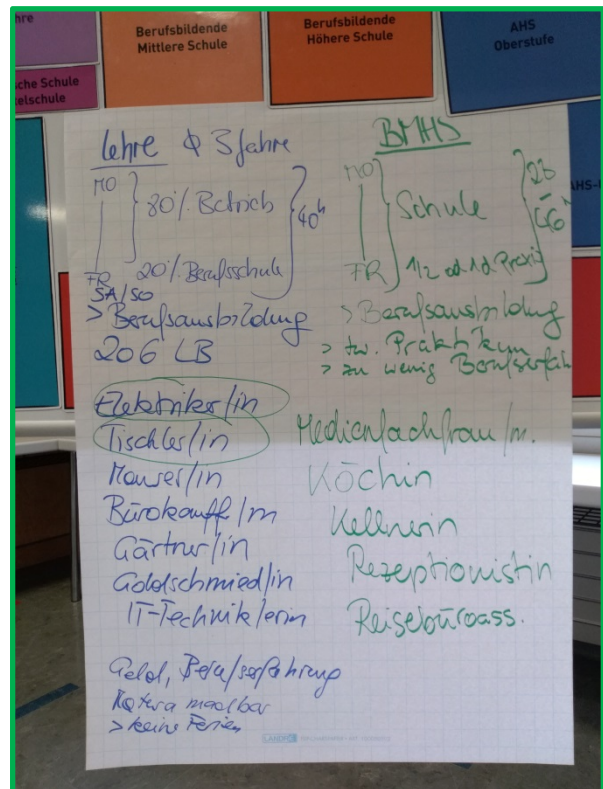 hre
Berufsbildende
Mittlere Schule
Berufsbildende
Höhere Schule
AHS
Oberstufe
che Schule
telschule
AHS-
Lehre ϕ 3 Jahre
MO
80% Betrieb
40h
20% Berufsschule
FR
SA/SO
> Berufsausbildung
206 LB
Elektriker/in
Tischler/in
Maurer/in
Bürokauff/m
Gärtner/in
Goldschmied/in
IT-Technik/erin
Geld, Berufserfahrung
Matura machbar
> keine Ferien
BMHS
MO
Schule
FR
1/2 od 1d Praxis
> Berufsausbildung
> tw. Praktikum
> zu wenig Berufserfah
Medienfachfrau/m.
Köchin
Kellnerin
Rezeptionistin
Reisebüroass.